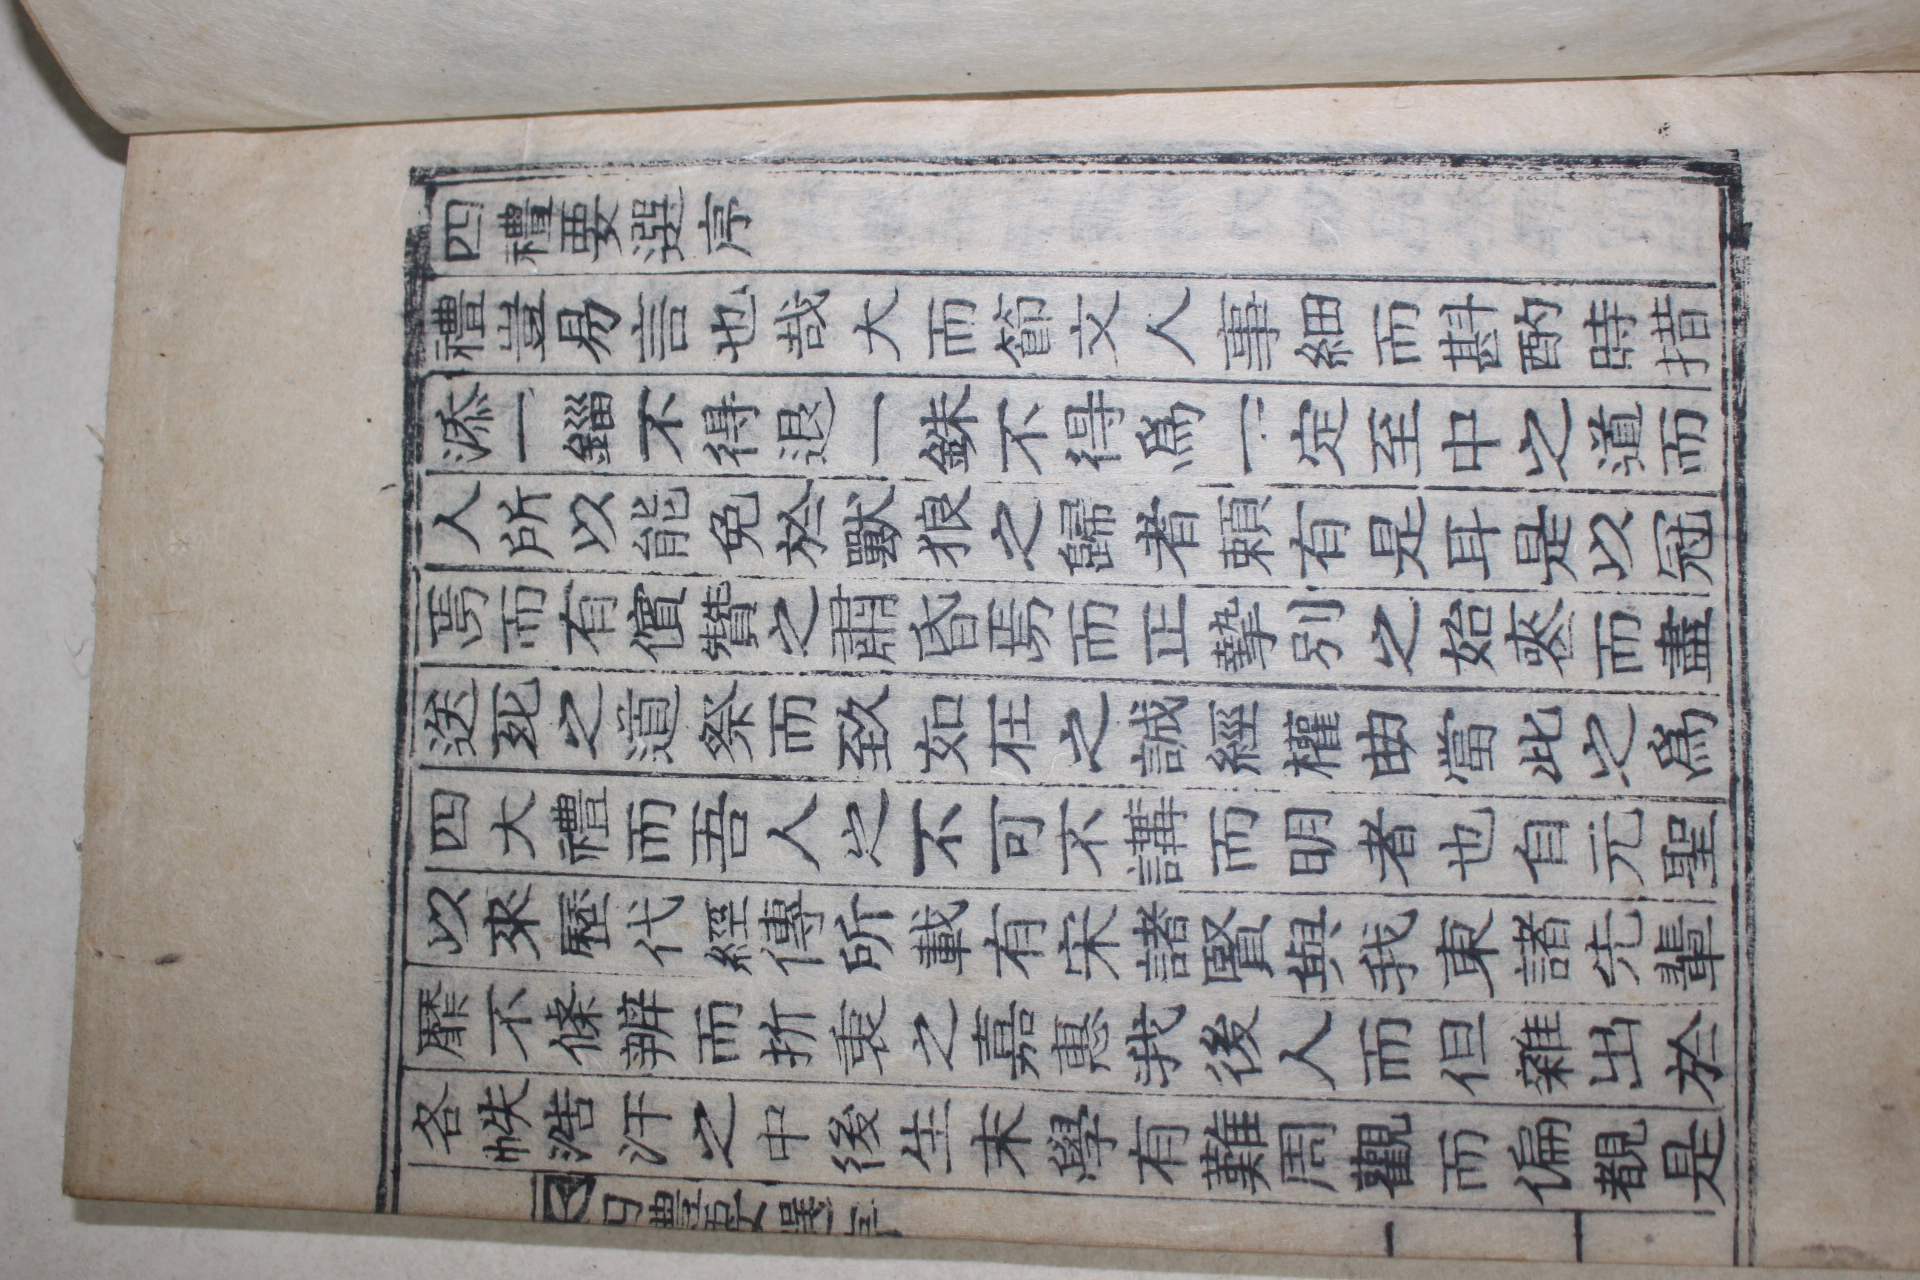 四禮要選序
禮豈易言也哉大而節文人事細而斟酌時措
添一錙不得退一銖不得爲一定至中之道而
人所以能免於獸狼之歸者賴有是耳是以冠
焉而有儐贊之肅昏焉而正摯別之始喪而盡
送死之道祭而致如在之誠經權曲當此之爲
四大禮而吾人之不可不講而明者也自元聖
以來歷代經傳所載有宋諸賢與我東諸先輩
靡不條辨而折衷之嘉惠我後人而但雜出於
各帙浩汗之中後生末學有難周觀而偏覩是
四禮要選序
一